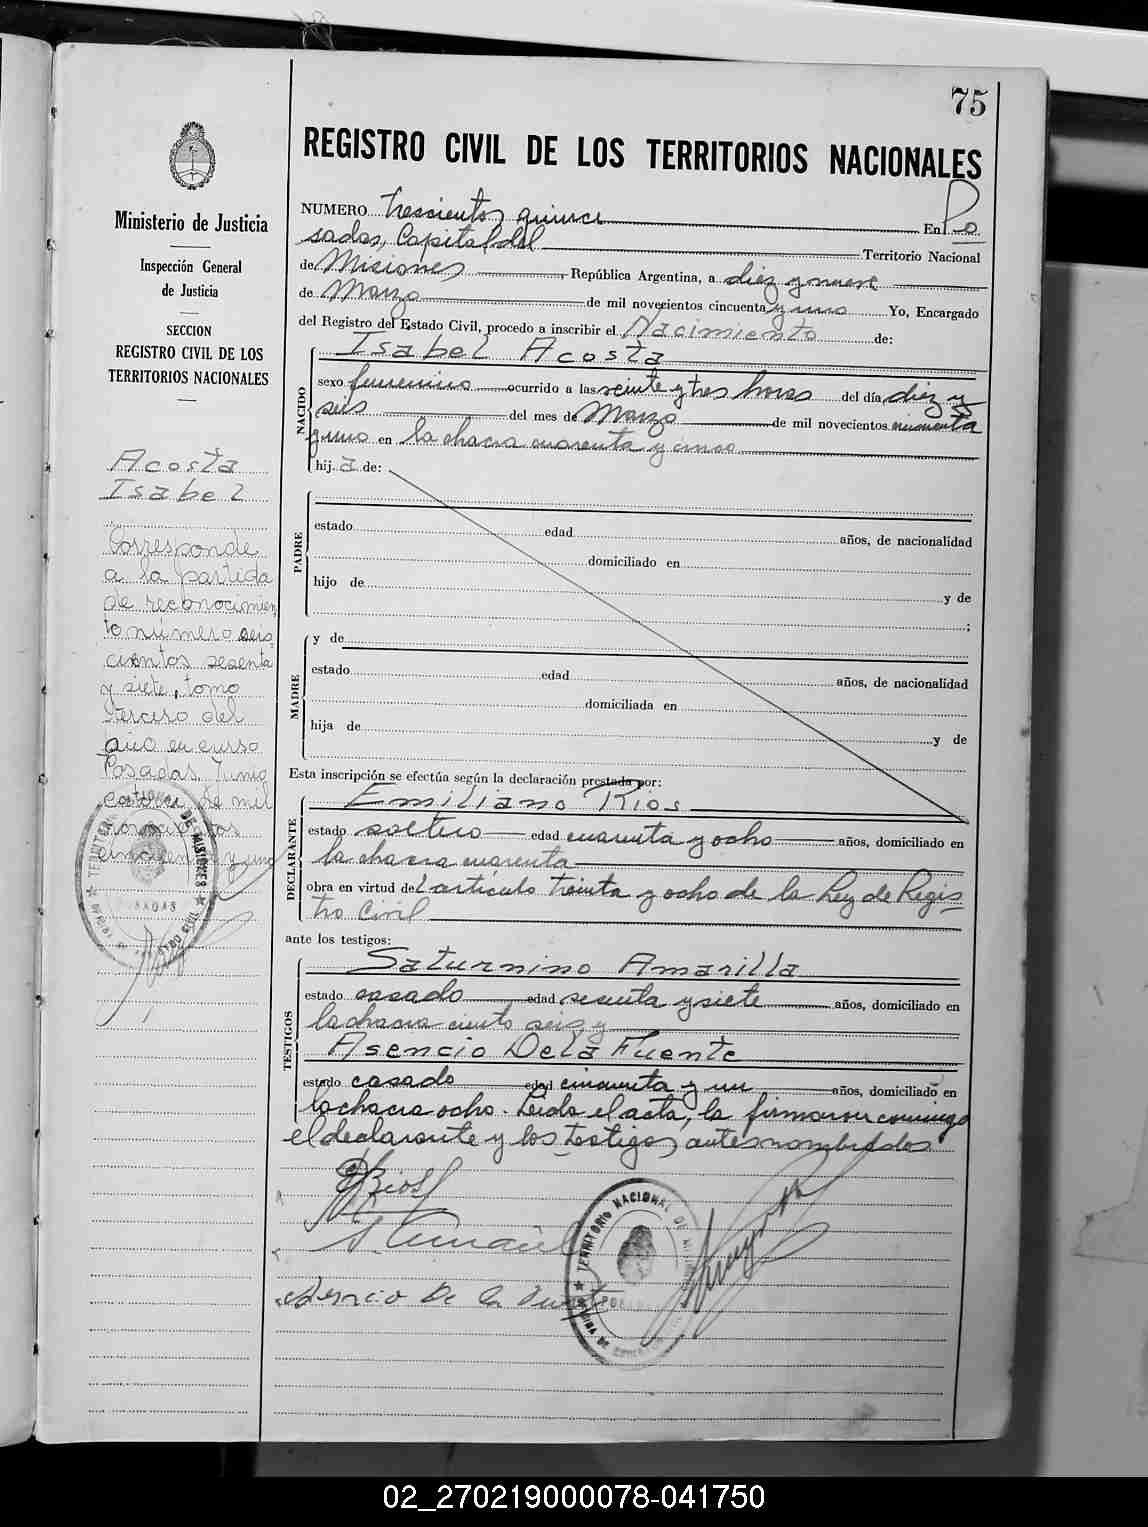 75
REGISTRO CIVIL DE LOS TERRITORIOS NACIONALES
Ministerio de Justicia
Inspección General
de Justicia
SECCION
REGISTRO CIVIL DE LOS
TERRITORIOS NACIONALES
Acosta
Isabel
Corresponde
a la partida
de reconocimien
to número seis
cientos sesenta
y siete, tomo
tercero del
año en curso
Posadas, Junio
catorce de mil
novecientos
cincuenta y uno
NUMERO trescientos quince En Po
sadas, Capital del Territorio Nacional
de Misiones, República Argentina, a diez y nueve
de Marzo de mil novecientos cincuenta y uno Yo, Encargado
del Registro del Estado Civil, procedo a inscribir el Nacimiento de:
NACIDO
Isabel Acosta
sexo femenino ocurrido a las veinte y tres horas del día diez y
seis del mes de Marzo de mil novecientos cincuenta
y uno en la chacra cuarenta y cinco
hij a de:
PADRE
estado edad años, de nacionalidad
domiciliado en
hijo de y de
;
MADRE
y de
estado edad años, de nacionalidad
domiciliada en
hija de y de
Esta inscripción se efectúa según la declaración prestada por:
DECLARANTE
Emiliano Rios
estado soltero edad cuarenta y ocho años, domiciliado en
la chacra cuarenta
obra en virtud del artículo treinta y ocho de la Ley de Regis-
tro Civil
ante los testigos:
TESTIGOS
Saturnino Amarilla
estado casado edad sesenta y siete años, domiciliado en
la chacra ciento seis y
Asencio De la Fuente
estado casado edad cincuenta y un años, domiciliado en
la chacra ocho. Leida el acta, la firmaron conmigo
el declarante y los testigos antes nombrados
E Rios
Asencio De la Fuente
TERRITORIO NACIONAL DE MISIONES
02_270219000078-041750